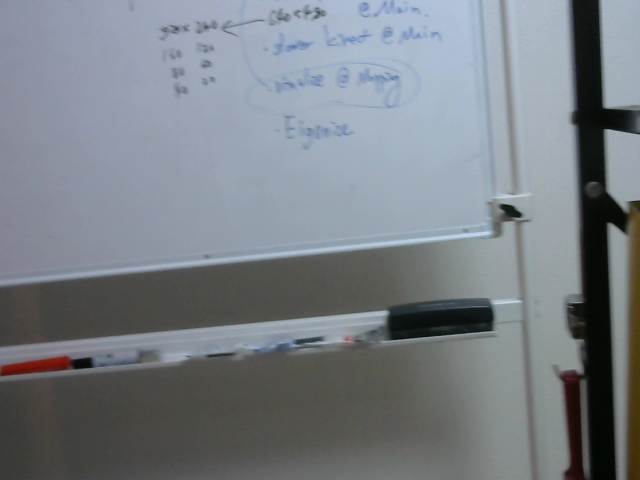 320x240 ← 640x480 @ Main.
160 120
80 60
40 20
· slower kinect @ Main
· visualize @ Mapping
· Eigenize